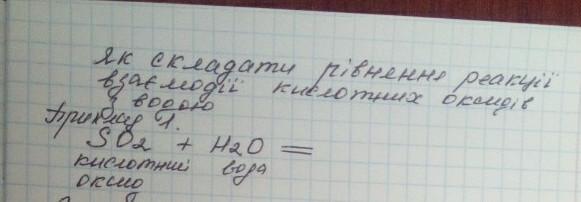 як складати рівняння реакції
взаємодії кислотних оксидів
з водою
Приклад 1.
SO2 + H2O =
кислотний вода
оксид